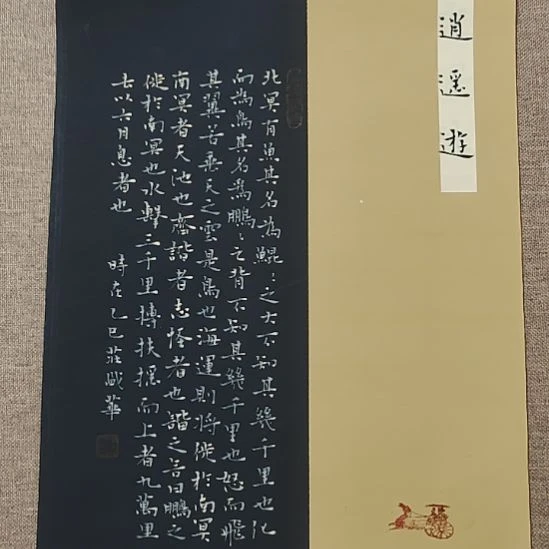 逍遥遊
北冥有魚其名為鯤〻之大不知其幾千里也化
而為鳥其名為鵬〻之背不知其幾千里也怒而飛
其翼若垂天之雲是鳥也海運則將徙於南冥
南冥者天池也齊諧者志怪者也諧之言曰鵬之
徙於南冥也水擊三千里摶扶搖而上者九萬里
去以六月息者也 時在乙巳莊華